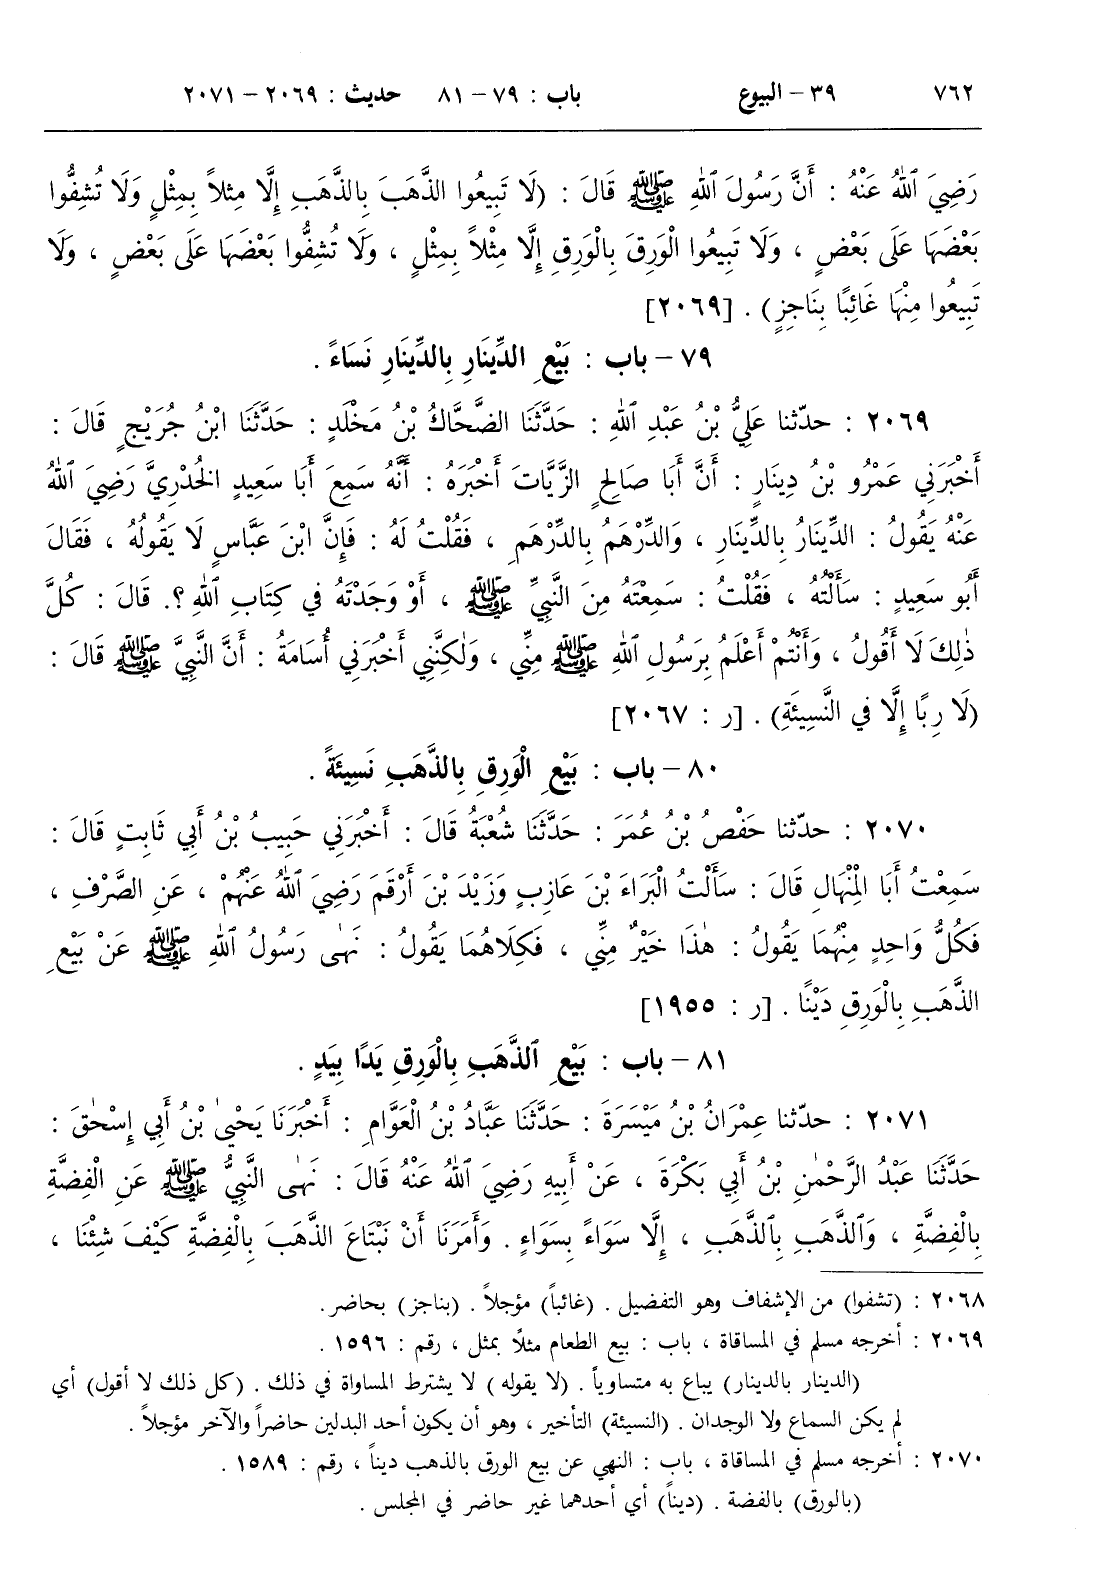 ٧٦٢ ٣٩ – البيوع باب : ٧٩ – ٨١ حديث : ٢٠٦٩ – ٢٠٧١
رَضِيَ ٱللهُ عَنْهُ : أَنَّ رَسُولَ ٱللهِ ﷺ قَالَ : (لَا تَبِيعُوا الذَّهَبَ بِالذَّهَبِ إِلَّا مِثلاً بِمِثْلٍ وَلَا تُشِفُّوا
بَعْضَهَا عَلَى بَعْضٍ ، وَلَا تَبِيعُوا الْوَرِقَ بِالْوَرِقِ إِلَّا مِثْلاً بِمِثْلٍ ، وَلَا تُشِفُّوا بَعْضَهَا عَلَى بَعْضٍ ، وَلَا
تَبِيعُوا مِنْهَا غَائِبًا بِنَاجِزٍ) . [٢٠٦٩]
٧٩ – باب : بَيْعِ الدِّينَارِ بِالدِّينَارِ نَسَاءً .
٢٠٦٩ : حدّثنا عَلِيُّ بْنُ عَبْدِ ٱللهِ : حَدَّثَنَا الضَّحَّاكُ بْنُ مَخْلَدٍ : حَدَّثَنَا ابْنُ جُرَيْجٍ قَالَ :
أَخْبَرَنِي عَمْرُو بْنُ دِينَارٍ : أَنَّ أَبَا صَالِحٍ الزَّيَّاتَ أَخْبَرَهُ : أَنَّهُ سَمِعَ أَبَا سَعِيدٍ الخُدْرِيَّ رَضِيَ ٱللهُ
عَنْهُ يَقُولُ : الدِّينَارُ بِالدِّينَارِ ، وَالدِّرْهَمُ بِالدِّرْهَمِ ، فَقُلْتُ لَهُ : فَإِنَّ ابْنَ عَبَّاسٍ لَا يَقُولُهُ ، فَقَالَ
أَبُو سَعِيدٍ : سَأَلْتُهُ ، فَقُلْتُ : سَمِعْتَهُ مِنَ النَّبِيِّ ﷺ ، أَوْ وَجَدْتَهُ فِي كِتَابِ ٱللهِ ؟. قَالَ : كُلَّ
ذٰلِكَ لَا أَقُولُ ، وَأَنْتُمْ أَعْلَمُ بِرَسُولِ ٱللهِ ﷺ مِنِّي ، وَلٰكِنَّنِي أَخْبَرَنِي أُسَامَةُ : أَنَّ النَّبِيَّ ﷺ قَالَ :
(لَا رِبًا إِلَّا فِي النَّسِيئَةِ) . [ر : ٢٠٦٧]
٨٠ – باب : بَيْعِ الْوَرِقِ بِالذَّهَبِ نَسِيئَةً .
٢٠٧٠ : حدّثنا حَفْصُ بْنُ عُمَرَ : حَدَّثَنَا شُعْبَةُ قَالَ : أَخْبَرَنِي حَبِيبُ بْنُ أَبِي ثَابِتٍ قَالَ :
سَمِعْتُ أَبَا الْمِنْهَالِ قَالَ : سَأَلْتُ الْبَرَاءَ بْنَ عَازِبٍ وَزَيْدَ بْنَ أَرْقَمَ رَضِيَ ٱللهُ عَنْهُمْ ، عَنِ الصَّرْفِ ،
فَكُلُّ وَاحِدٍ مِنْهُمَا يَقُولُ : هٰذَا خَيْرٌ مِنِّي ، فَكِلَاهُمَا يَقُولُ : نَهٰى رَسُولُ ٱللهِ ﷺ عَنْ بَيْعِ
الذَّهَبِ بِالْوَرِقِ دَيْنًا . [ر : ١٩٥٥]
٨١ – باب : بَيْعِ ٱلذَّهَبِ بِالْوَرِقِ يَدًا بِيَدٍ .
٢٠٧١ : حدّثنا عِمْرَانُ بْنُ مَيْسَرَةَ : حَدَّثَنَا عَبَّادُ بْنُ الْعَوَّامِ : أَخْبَرَنَا يَحْيىٰ بْنُ أَبِي إِسْحٰقَ :
حَدَّثَنَا عَبْدُ الرَّحْمٰنِ بْنُ أَبِي بَكْرَةَ ، عَنْ أَبِيهِ رَضِيَ ٱللهُ عَنْهُ قَالَ : نَهٰى النَّبِيُّ ﷺ عَنِ الْفِضَّةِ
بِالْفِضَّةِ ، وَٱلذَّهَبِ بِٱلذَّهَبِ ، إِلَّا سَوَاءً بِسَوَاءٍ . وَأَمَرَنَا أَنْ نَبْتَاعَ الذَّهَبَ بِالْفِضَّةِ كَيْفَ شِئْنَا ،
٢٠٦٨ : (تشفوا) من الإشفاف وهو التفضيل . (غائباً) مؤجلاً . (بناجز) بحاضر .
٢٠٦٩ : أخرجه مسلم في المساقاة ، باب : بيع الطعام مثلاً بمثل ، رقم : ١٥٩٦ .
(الدينار بالدينار) يباع به متساوياً . (لا يقوله ) لا يشترط المساواة في ذلك . (كل ذلك لا أقول) أي
لم يكن السماع ولا الوجدان . (النسيئة) التأخير ، وهو أن يكون أحد البدلين حاضراً والآخر مؤجلاً .
٢٠٧٠ : أخرجه مسلم في المساقاة ، باب : النهي عن بيع الورق بالذهب ديناً ، رقم : ١٥٨٩ .
(بالورق) بالفضة . (ديناً) أي أحدهما غير حاضر في المجلس .